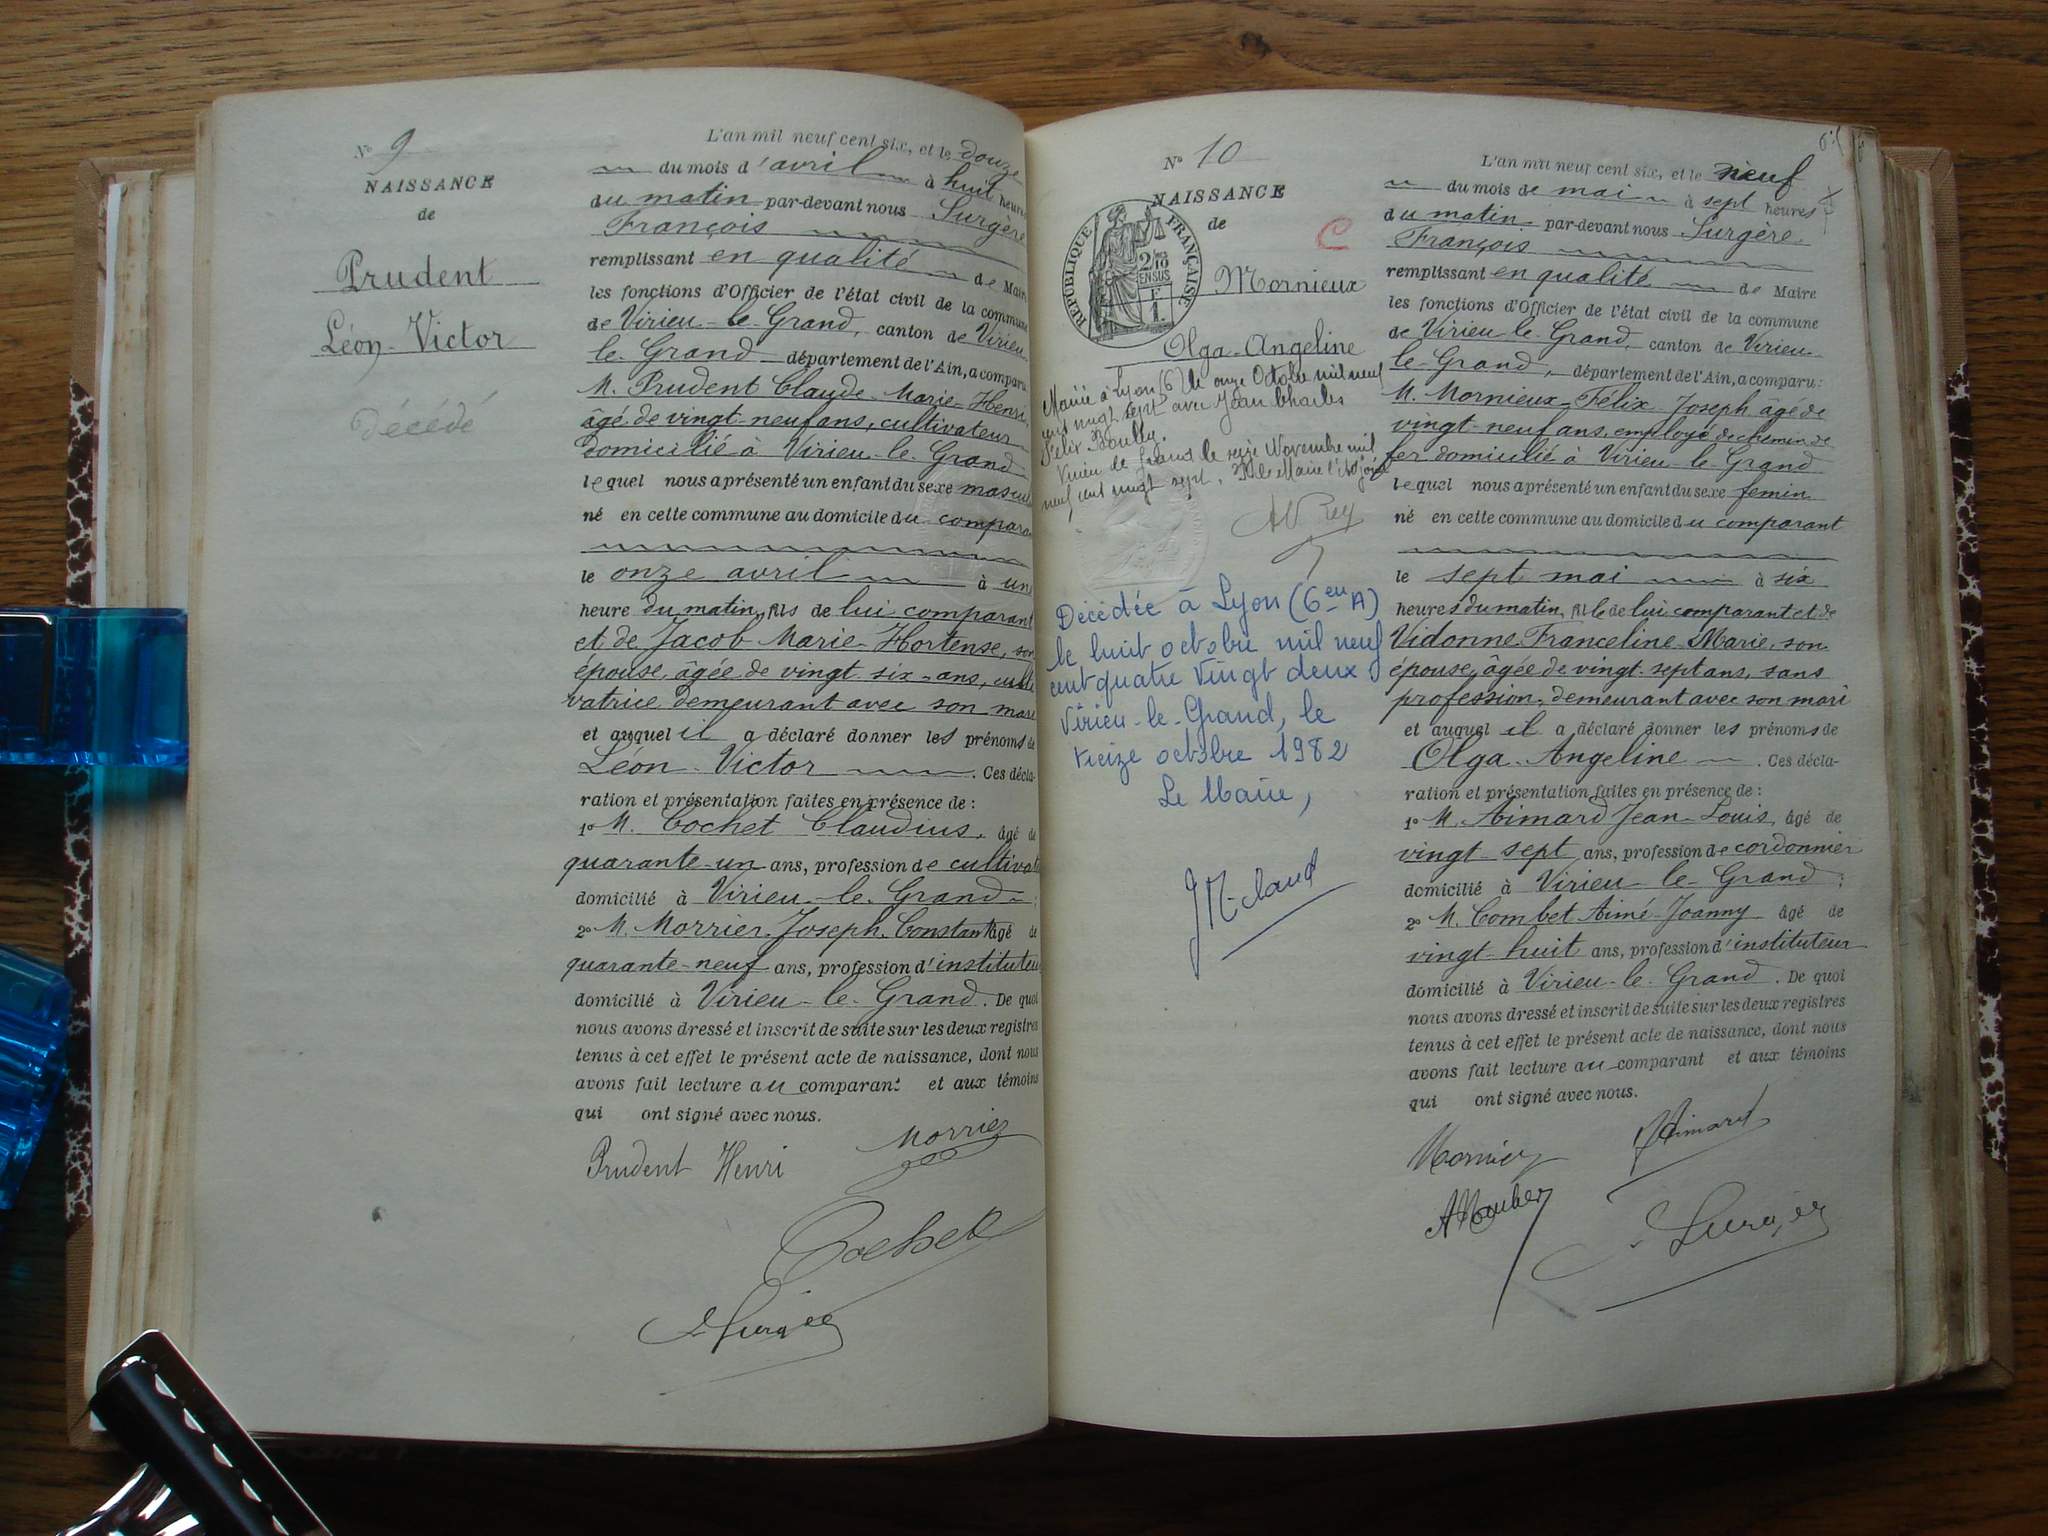 N° 9
NAISSANCE
de
Prudent
Léon-Victor
Décédé
L'an mil neuf cent six, et le douze
du mois d'avril à huit heures
du matin par-devant nous Surgère
François
remplissant en qualité de Maire
les fonctions d'Officier de l'état civil de la commune
de Virieu-le-Grand, canton de Virieu-
le-Grand département de l'Ain, a comparu
M. Prudent Claude-Marie-Henri,
âgé de vingt-neuf ans, cultivateur
domicilié à Virieu-le-Grand
lequel nous a présenté un enfant du sexe mascul
né en cette commune au domicile du compara
le onze avril à un
heure du matin, fils de lui comparant
et de Jacob Marie-Hortense, son
épouse, âgée de vingt-six-ans, culti
vatrice demeurant avec son mari
et auquel il a déclaré donner les prénoms de
Léon-Victor . Ces décla-
ration et présentation faites en présence de :
1° M. Cochet Claudius, âgé de
quarante-un ans, profession de cultivat
domicilié à Virieu-le-Grand ;
2° M. Morrier Joseph-Constant âgé de
quarante-neuf ans, profession d'instituteu
domicilié à Virieu-le-Grand. De quoi
nous avons dressé et inscrit de suite sur les deux registres
tenus à cet effet le présent acte de naissance, dont nous
avons fait lecture au comparant et aux témoins
qui ont signé avec nous.
Prudent Henri Morrier
Cochet
Surgère
N° 10
NAISSANCE
de
C
RÉPUBLIQUE FRANÇAISE
2/10 EN SUS
F
1
Mornieux
Olga-Angeline
Mariée à Lyon (6) le onze Octobre mil neuf
cent vingt sept avec Jean Charles
Félix
Virieu le Grand le seize Novembre mil
neuf cent vingt sept. P. le Maire l'Adjoint
Décédée à Lyon (6eme A)
le huit octobre mil neuf
cent quatre vingt deux
Virieu-le-Grand, le
treize octobre 1982
Le Maire,
L'an mil neuf cent six, et le neuf
du mois de mai à sept heures
du matin par-devant nous Surgère
François
remplissant en qualité de Maire
les fonctions d'Officier de l'état civil de la commune
de Virieu-le-Grand, canton de Virieu-
le-Grand, département de l'Ain, a comparu :
M. Mornieux-Félix Joseph âgé de
vingt-neuf ans, employé de chemin de
fer domicilié à Virieu-le-Grand
lequel nous a présenté un enfant du sexe femin
né en cette commune au domicile du comparant
le sept mai à six
heures du matin, fille de lui comparant et de
Vidonne Franceline-Marie, son
épouse, âgée de vingt-sept ans, sans
profession, demeurant avec son mari
et auquel il a déclaré donner les prénoms de
Olga-Angeline . Ces décla-
ration et présentation faites en présence de :
1° M. Aimard Jean-Louis, âgé de
vingt-sept ans, profession de cordonnier
domicilié à Virieu-le-Grand ;
2° M. Combet Aimé-Joanny âgé de
vingt-huit ans, profession d'instituteur
domicilié à Virieu-le-Grand. De quoi
nous avons dressé et inscrit de suite sur les deux registres
tenus à cet effet le présent acte de naissance, dont nous
avons fait lecture au comparant et aux témoins
qui ont signé avec nous.
Mornieux Aimard
Surgère